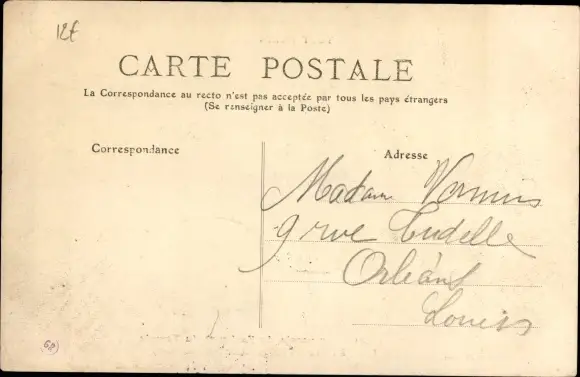 12€
CARTE POSTALE
La Correspondance au recto n'est pas acceptée par tous les pays étrangers
(Se renseigner à la Poste)
Correspondance
Adresse
Madame
9 rue Tudelle
Orléans